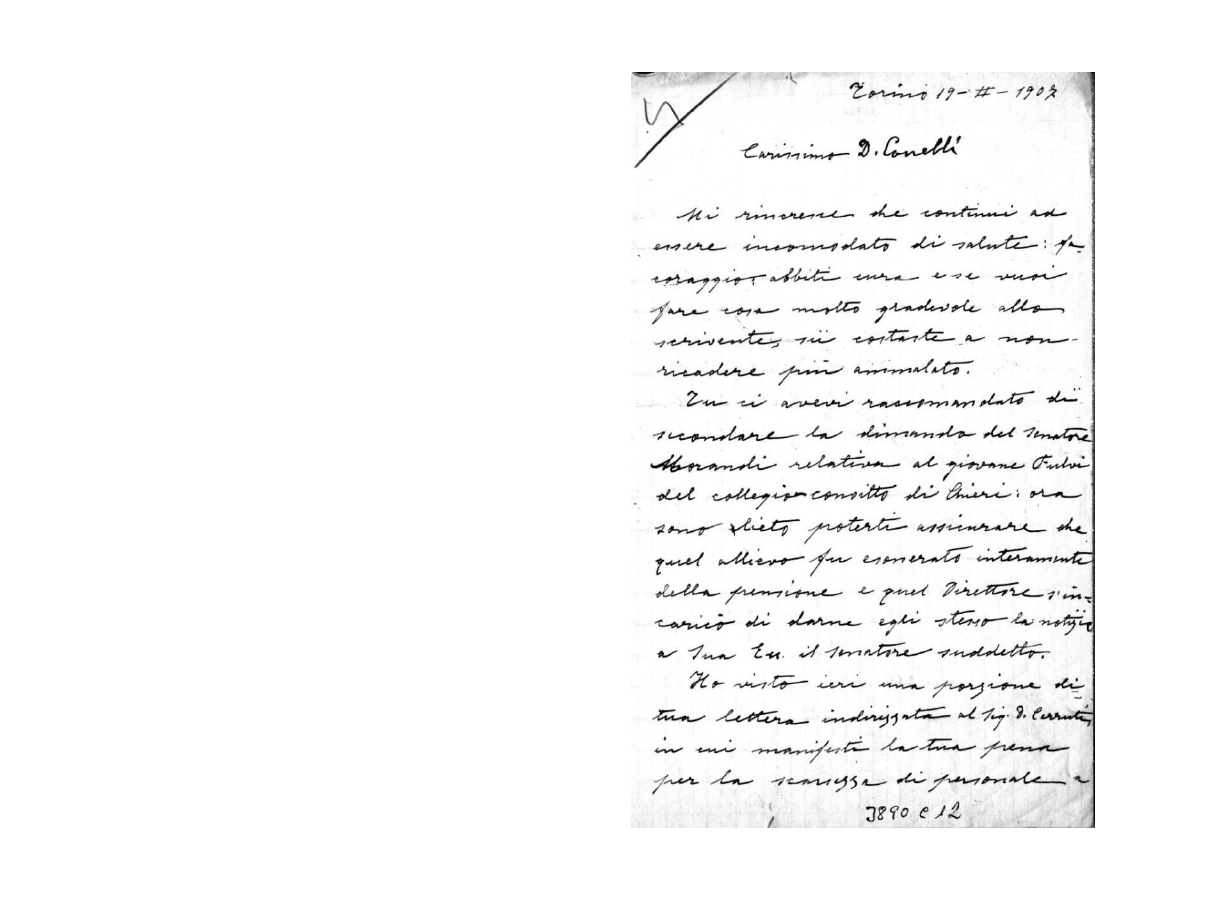 Torino 19-II-1907
Carissimo D. Conelli
Mi rincresce che continui ad
essere incomodato di salute: fa
coraggio: abbiti cura e se vuoi
fare cosa molto gradevole allo
scrivente, sii costante a non
ricadere più ammalato.
Tu ci avevi raccomandato di
secondare la dimanda del Senatore
Morandi relativa al giovane Fulvi
del collegio convitto di Chieri: ora
sono lieto poterti assicurare che
quel allievo fu esonerato interamente
della pensione e quel Direttore s'in-
caricò di darne egli stesso la notizia
a Sua Ecc. il senatore suddetto.
Ho visto ieri una porzione di
tua lettera indirizzata al Sig. D. Cerruti,
in cui manifesti la tua pena
per la scarsezza di personale a
3890 C 12